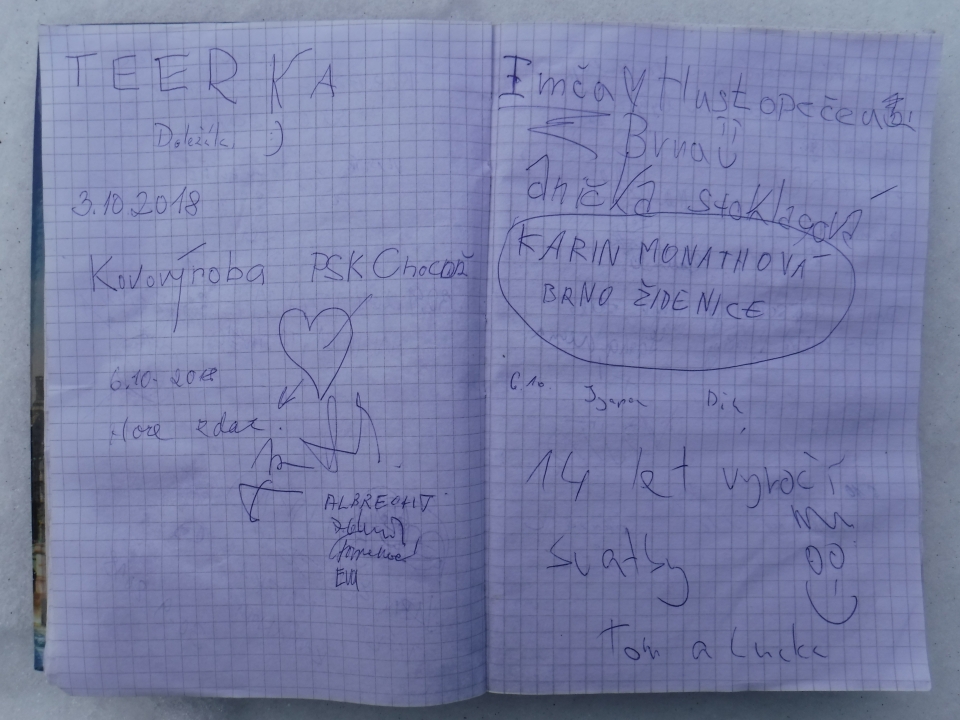 TEERKA
:)
3.10.2018
Kovovýroba PSK Choceň
6.10. 2018
Hore zdar.
ALBRECHT
EVA
Imča v Hustopečea
Brnaù
Anička Stoklasová
KARIN MONATHOVÁ
BRNO ŽIDENICE
6.10.
14 let výročí
svatby
Tom a Lucka